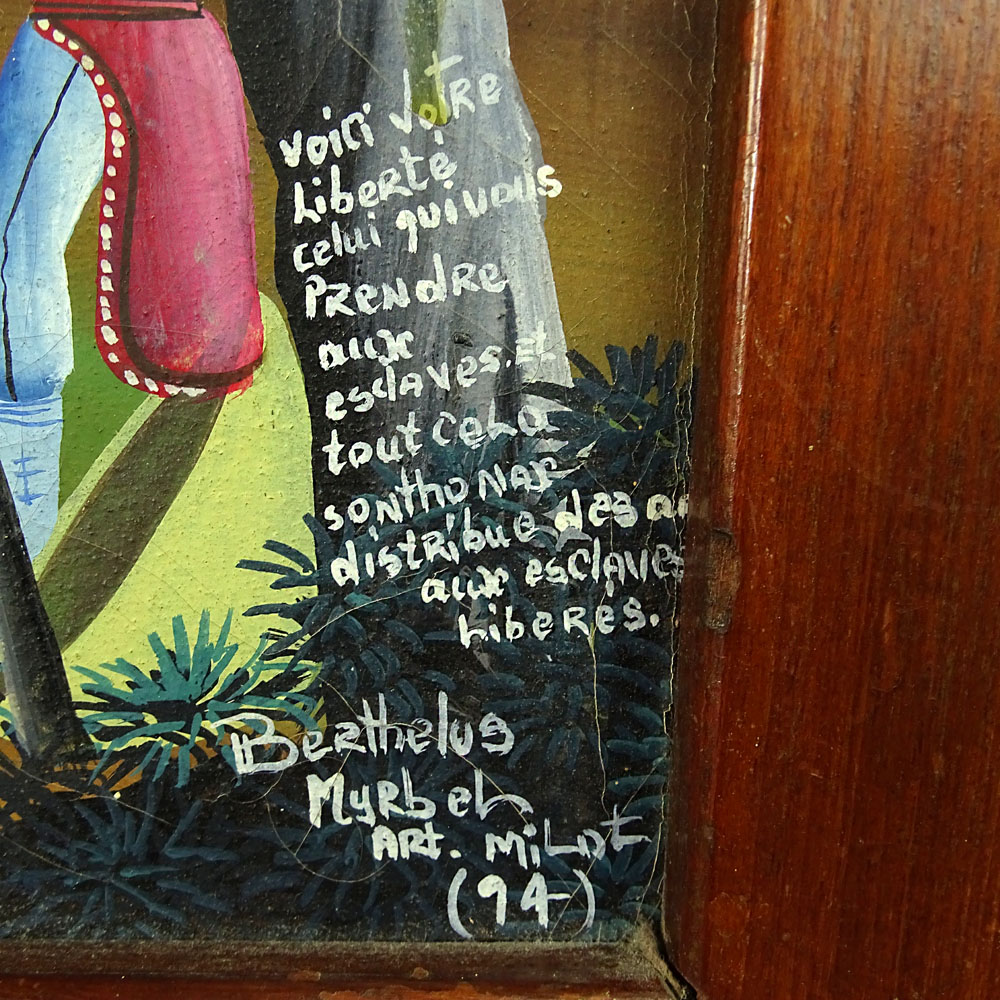 voici votre
Liberté
celui qui vous
PRENdRE
aux
esclaves. Et
tout ceLa
sonthoNax
distribue des
aux esclaves
LibeREs.
Berthelus
MyRbeL
ARt. MiLot
(94)